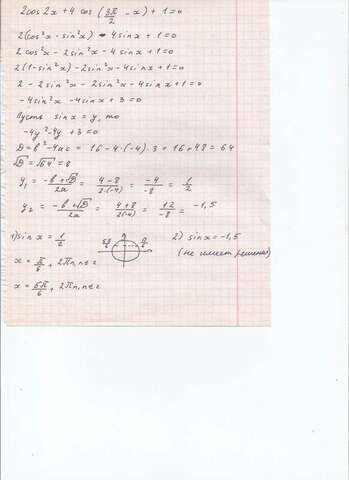 2cos2x + 4 cos (3π/2 - x) + 1 = 0
2(cos²x - sin²x) - 4sinx + 1 = 0
2 cos²x - 2sin²x - 4sinx + 1 = 0
2(1 - sin²x) - 2sin²x - 4sinx + 1 = 0
2 - 2sin²x - 2sin²x - 4sinx + 1 = 0
-4sin²x - 4sinx + 3 = 0
Пусть sinx = y, то
-4y² - 4y + 3 = 0
D = b² - 4ac = 16 - 4·(-4)·3 = 16 + 48 = 64
√D = √64 = 8
y₁ = -b + √D / 2a = 4 - 8 / 2·(-4) = -4 / -8 = 1/2
y₂ = -b + √D / 2a = 4 + 8 / 2(-4) = 12 / -8 = -1,5
1) sinx = 1/2 5π/6 π/6 2) sinx = -1,5
(не имеет решения)
x = π/6 + 2πn, n∈z
x = 5π/6 + 2πn, n∈z